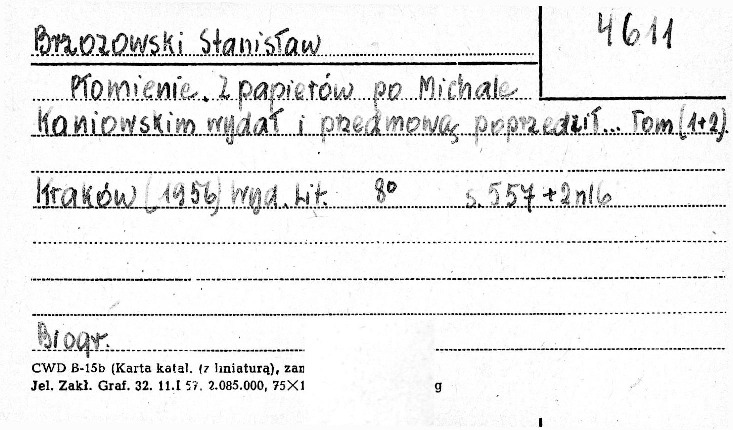 Brzozowski Stanisław
4611
Płomienie. Z papierów po Michale
Kaniowskim wydał i przedmową poprzedził... Tom (1+2).
Kraków (1956) Wyd. Lit. 8° s. 557+2nlb
Biogr.
CWD B-15b (Karta katal. (z liniaturą), zan
Jel. Zakł. Graf. 32. 11.I 57. 2.085.000, 75×1 g